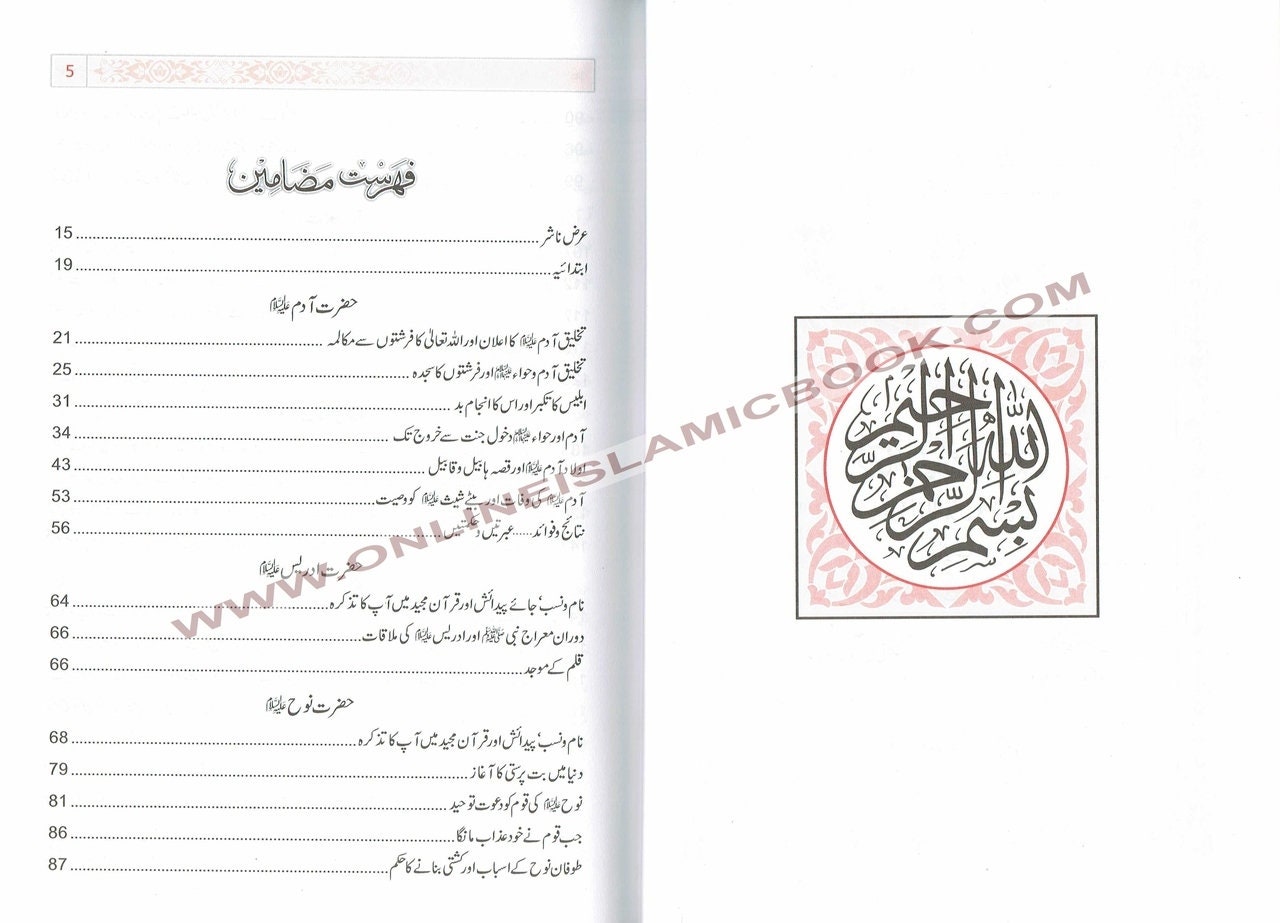 بسم الله الرحمن الرحيم
WWW.ONLINEISLAMICBOOK.COM
5
فہرست مضامین
عرض ناشر ........ 15
ابتدائیہ ........ 19
حضرت آدم علیہ السلام
تخلیق آدم علیہ السلام کا اعلان اور اللہ تعالیٰ کا فرشتوں سے مکالمہ ........ 21
تخلیق آدم و حواء علیہما السلام اور فرشتوں کا سجدہ ........ 25
ابلیس کا تکبر اور اس کا انجام بد ........ 31
آدم اور حواء علیہما السلام دخول جنت سے خروج تک ........ 34
اولاد آدم علیہ السلام اور قصہ ہابیل و قابیل ........ 43
آدم علیہ السلام کی وفات اور بیٹے شیث علیہ السلام کو وصیت ........ 53
نتائج و فوائد ...... عبرتیں و حکمتیں ........ 56
حضرت ادریس علیہ السلام
نام و نسب، جائے پیدائش اور قرآن مجید میں آپ کا تذکرہ ........ 64
دوران معراج نبی صلی اللہ علیہ وسلم اور ادریس علیہ السلام کی ملاقات ........ 66
قلم کے موجد ........ 66
حضرت نوح علیہ السلام
نام و نسب، پیدائش اور قرآن مجید میں آپ کا تذکرہ ........ 68
دنیا میں بت پرستی کا آغاز ........ 79
نوح علیہ السلام کی قوم کو دعوت توحید ........ 81
جب قوم نے خود عذاب مانگا ........ 86
طوفان نوح کے اسباب اور کشتی بنانے کا حکم ........ 87